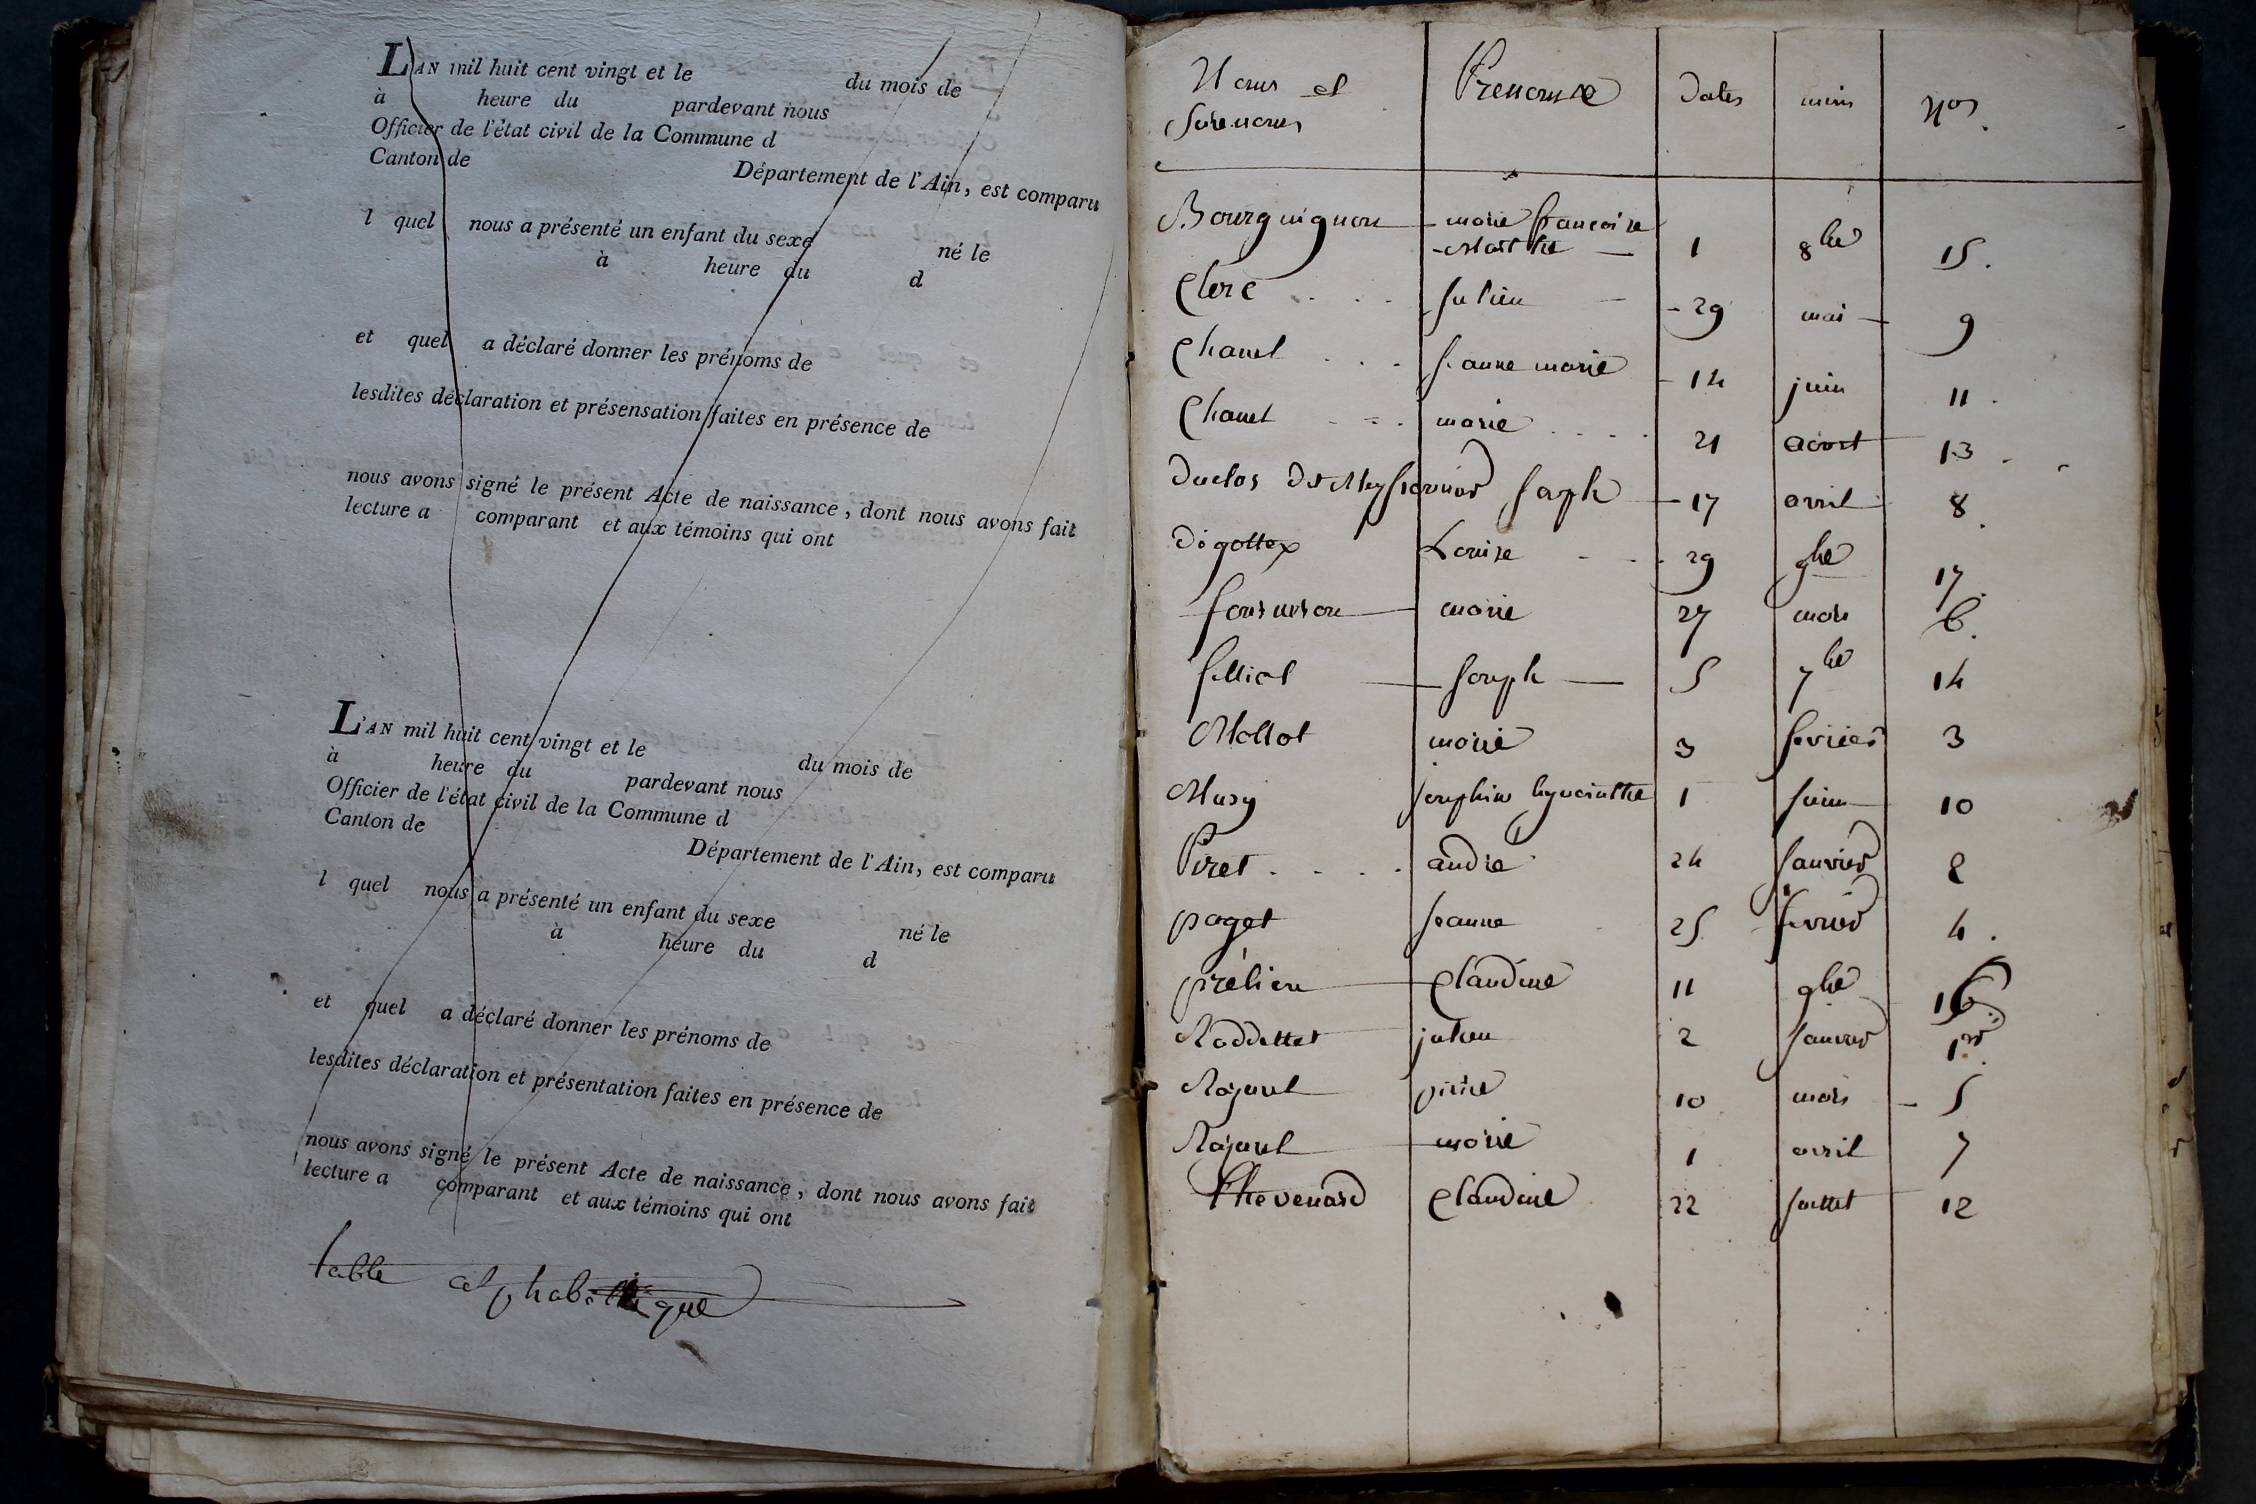 L'AN mil huit cent vingt et le du mois de
à heure du pardevant nous
Officier de l'état civil de la Commune d
Canton de Département de l'Ain, est comparu
l quel nous a présenté un enfant du sexe né le
à heure du d
et quel a déclaré donner les prénoms de
lesdites déclaration et présensation faites en présence de
nous avons signé le présent Acte de naissance, dont nous avons fait
lecture a comparant et aux témoins qui ont
L'AN mil huit cent vingt et le du mois de
à heure du pardevant nous
Officier de l'état civil de la Commune d
Canton de Département de l'Ain, est comparu
l quel nous a présenté un enfant du sexe né le
à heure du d
et quel a déclaré donner les prénoms de
lesdites déclaration et présentation faites en présence de
nous avons signé le présent Acte de naissance, dont nous avons fait
lecture a comparant et aux témoins qui ont
table alphabétique
Noms et Prenoms Dates mois Nos
Surnoms
Bourguignon marie francoise
Marthe 1 8bre 15.
Clerc julien 29 mai 9
Chanel jeanne marie 14 juin 11
Chanel marie 21 aoust 13
Duclos joseph 17 avril 8
Digottex Louise 29 9bre 17
marie 27 mars 6.
filliol joseph 5 7bre 14
Mollot marie 3 fevrier 3
Musy josephine hyacinthe 1 juin 10
Piret andré 24 janvier 2
paget jeanne 25 fevrier 4.
prélion Claudine 11 9bre 16
Roddettet julien 2 janvier 1er
Rojanel pierre 10 mars 5
Rojanel marie 1 avril 7
Thevenard Claudine 22 juillet 12